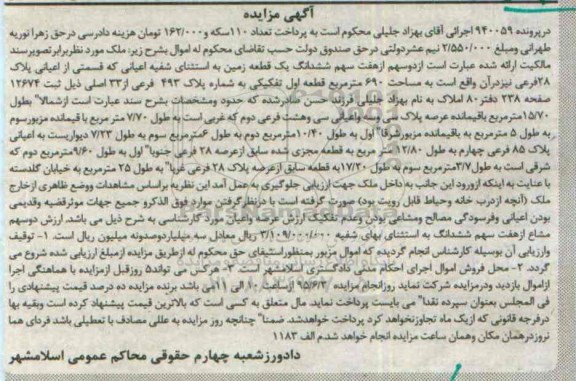 آگهی مزایده
درپرونده ۹۴۰۰۵۹ اجرائی آقای بهزاد جلیلی محکوم است به پرداخت تعداد ۱۱۰سکه و۱۶۲/۰۰۰ تومان هزینه دادرسی درحق زهرا توریه
طهرانی ومبلغ ۲/۵۵۰/۰۰۰ نیم عشردولتی درحق صندوق دولت حسب تقاضای محکوم له اموال بشرح زیر: ملک مورد نظربرابرتصویرسند
مالکیت ارائه شده عبارت است ازدوسهم ازهفت سهم ششدانگ یک قطعه زمین به استثنای شفیه اعیانی که قسمتی از اعیانی پلاک
۲۸فرعی نیزدرآن واقع است به مساحت ۶۹۰ مترمربع قطعه اول تفکیکی به شماره پلاک ۴۹۳ فرعی از۳۳ اصلی ذیل ثبت ۱۲۶۷۴
صفحه ۲۳۸ دفتر۸۰ املاک به نام بهزاد جلیلی فرزند حسن صادرشده که حدود ومشخصات بشرح سند عبارت است ازشمالا" بطول
۱۵/۷۰مترمربع باقیمانده عرصه پلاک سی وسه واعیانی سی وهشت فرعی دوم که غربی است به طول ۷/۷۰ متر مربع با قیمانده مزبورسوم
به طول ۵ مترمربع به باقیمانده مزبورشرقا" اول به طول ۱۰/۴۰مترمربع دوم به طول ۶مترمربع سوم به طول ۷/۲۳ دیواریست به اعیانی
پلاک ۸۵ فرعی چهارم به طول ۱۲/۸۰ متر مربع به قطعه مجزی شده سابق ازعرصه ۲۸ فرعی جنوبا" اول به طول ۹/۶۰مترمربع دوم که
شرقی است به طول۳/۷مترمربع سوم به طول ۱۷/۲۰به قطعه سابق ازعرصه پلاک ۲۸ فرعی غربا" به طول ۲۵ مترمربع به خیابان گلدسته
با عنایت به اینکه ازورود این جانب به داخل ملک جهت ارزیابی جلوگیری به عمل آمد این نظریه براساس مشاهدات ووضع ظاهری ازخارج
ملک (آنچه ازدرب خانه وحیاط قابل رویت بود) صورت گرفته است با درنظرگرفتن موارد فوق الذکرو جمیع جهات موثرقضیه وقدیمی
بودن اعیانی وفرسودگی مصالح ومشاعی بودن وعدم تفکیک ارزش عرصه واعیان مورد کارشناسی به شرح ذیل می باشد. ارزش دوسهم
مشاع ازهفت سهم ششدانگ به استثنای بهای شفیه ۳/۱۰۹/۰۰۰/۰۰۰ ریال معادل سه میلیاردوصدونه میلیون ریال است. ۱- توقیف
وارزیابی آن بوسیله کارشناس انجام گردیده که اموال مزبور بمنظوراستیفای حق محکوم له ازطریق مزایده ازمبلغ ارزیابی شده شروع می
گردد. ۲- محل فروش اموال اجرای احکام مدنی دادگستری اسلامشهر است. ۳- هرکس می تواند۵ روزقبل ازمزایده با هماهنگی اجرا
ازاموال بازدید ودرمزایده شرکت نماید روزانجام مزایده ۹۵/۶/۳ ازساعت ۱۰ الی ۱۱می باشد برنده مزایده ده درصد قیمت پیشنهادی را
فی المجلس بعنوان سپرده نقدا" می بایست پرداخت نماید. مال متعلق به کسی است که بالاترین قیمت پیشنهاد کرده است وبقیه بها
درفرجه قانونی که ازیک ماه تجاوزنخواهد کرد پرداخت خواهدشد. ضمنا" چنانچه روز مزایده به عللی مصادف با تعطیلی باشد فردای هما
نروزدرهمان مکان وهمان ساعت مزایده انجام خواهد شد.م الف ۱۱۸۳
دادورزشعبه چهارم حقوقی محاکم عمومی اسلامشهر